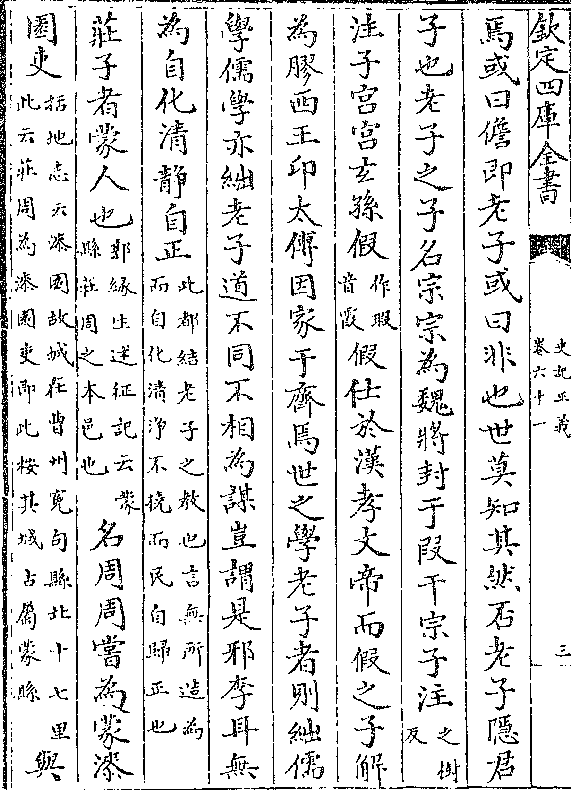 欽定四庫全書
史記正義
卷六十一
三
焉或曰儋即老子或曰非也世莫知其然否老子隱君
子也老子之子名宗宗為魏將封于段干宗子注之樹反
注子宫宫玄孫假作瑕音霞假仕於漢孝文帝而假之子解
為膠西王卬太傅因家于齊焉世之學老子者則絀儒
學儒學亦絀老子道不同不相為謀豈謂是邪李耳無
為自化清靜自正此都結老子之教也言無所造為而自化清淨不撓而民自歸正也
莊子者蒙人也郭緣生述征記云蒙縣莊周之本邑也名周周嘗為蒙漆
園吏括地志云漆園故城在曹州寃句縣北十七里此云莊周為漆園吏即此按其城古屬蒙縣與